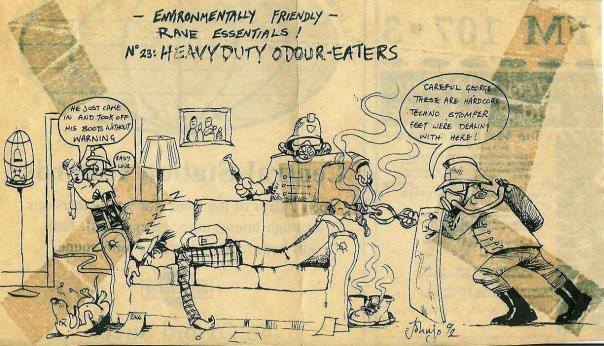 FM 107·3
- ENVIRONMENTALLY FRIENDLY -
RAVE ESSENTIALS!
Nº23: HEAVYDUTY ODOUR-EATERS
HE JUST CAME
IN AND TOOK OFF
HIS BOOTS WITHOUT
WARNING
CAREFUL GEORGE
THESE ARE HARDCORE
TECHNO STOMPER
FEET WERE DEALIN'
WITH HERE!